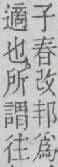 子春改邦爲
適也。所謂往